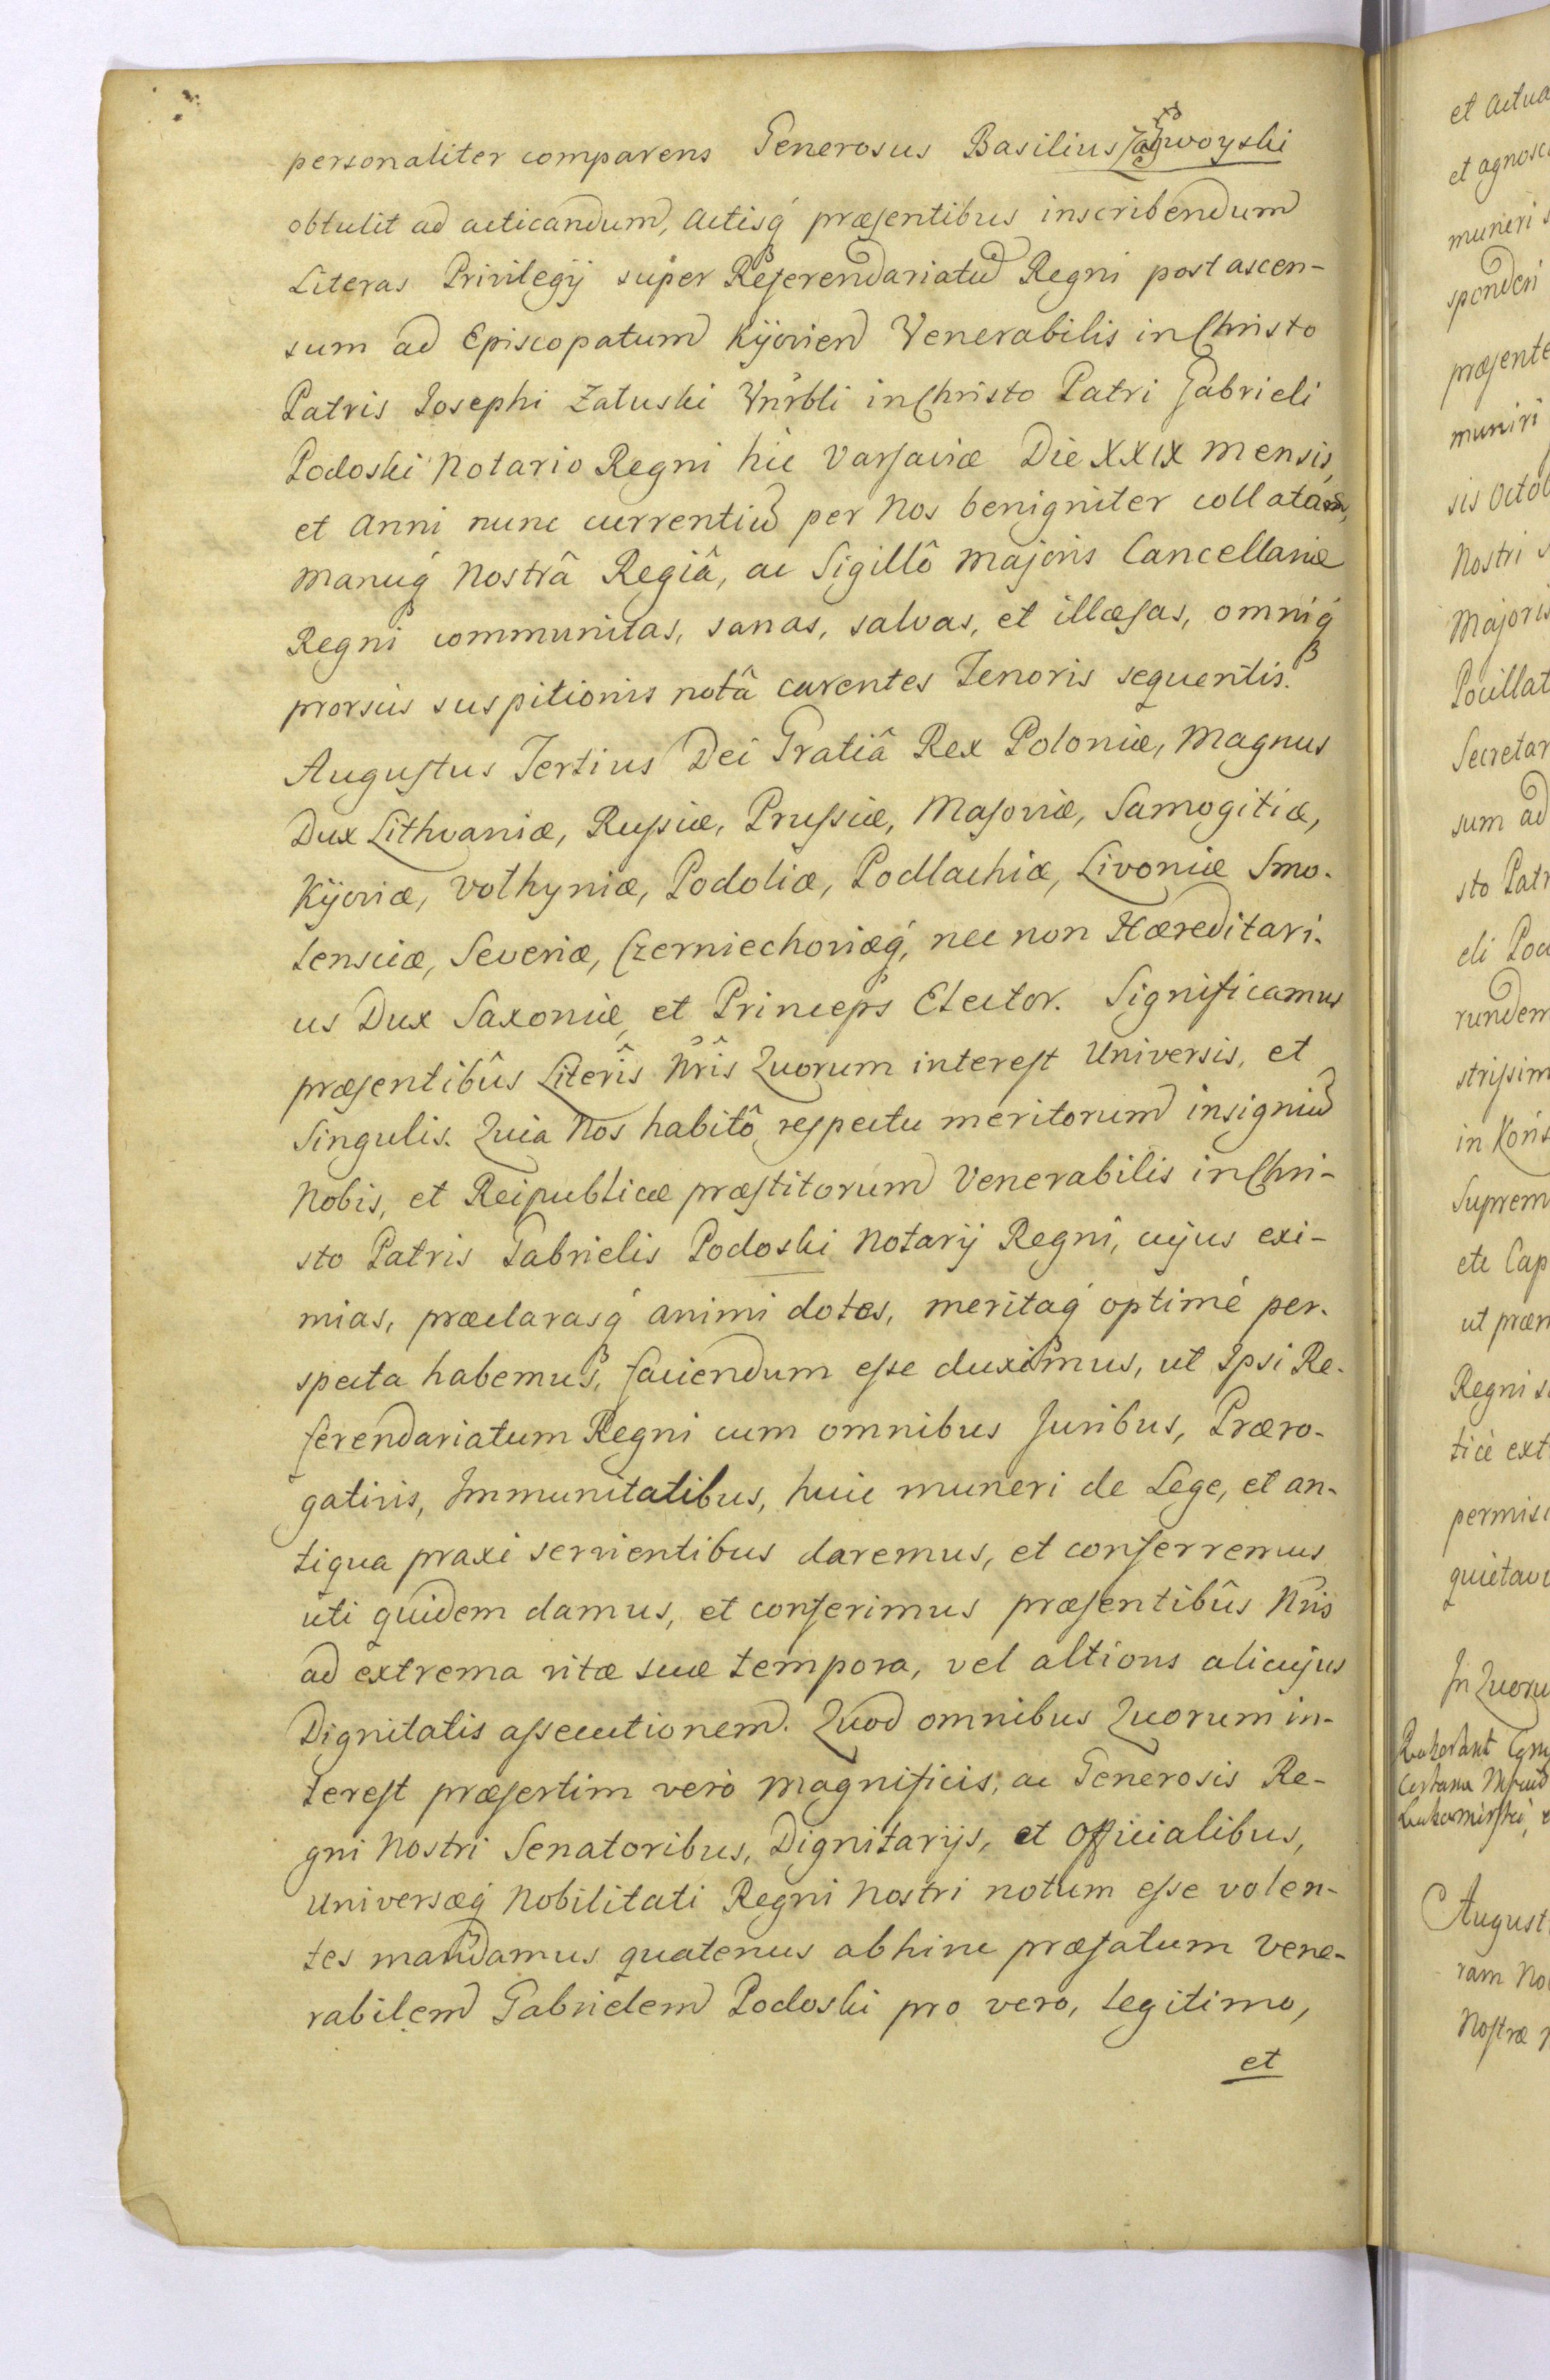 personaliter comparens Generosus Basilius
obtulit ad acticandum, Actisq́ præsentibus inscribendum
Literas Privilegÿ super Referendariatũ Regni post ascen-
sum ad Episcopatum Kÿovien Venerabilis in Christo
Patris Josephi Załuski Vnrbli in Christo Patri Gabrieli
Podoski Notario Regni hic Varsaviæ Die XXIX Mensis,
et Anni nunc currentiũ per Nos benigniter collatam,
Manuq́ Nostrâ Regiâ, ac Sigillô Majoris Cancellariæ
Regni communitas, sanas, salvas, et illæsas, omniq́
prorsus suspitionis notâ carentes Tenoris sequentis.
Augustus Tertius Dei Gratiâ Rex Poloniæ, Magnus
Dux Lithvaniæ, Russiæ, Prussiæ, Masoviæ, Samogitiæ,
Kÿoviæ, Volhyniæ, Podoliæ, Podlachiæ, Livoniæ Smo-
lensciæ, Severiæ, Czerniechoviæq́, nec non Hæreditari-
us Dux Saxoniæ, et Princeps Elector. Significamus
præsentibûs Literîs Nrîs Quorum interest Universis, et
Singulis. Quia Nos habitô respectu meritorum insigniũ
Nobis, et Reipublicæ præstitorum Venerabilis in Chri-
sto Patris Gabrielis Podoski Notarÿ Regni, cujus exi-
mias, præclarasq́ animi dotes, meritaq́ optimè per-
specta habemus, faciendum esse duximus, ut Ipsi Re-
ferendariatum Regni cum omnibus Juribus, Præro-
gativis, Immunitatibus, huic muneri de Lege, et an-
tiqua praxi servientibus daremus, et conferremus
uti quidem damus, et conferimus præsentibûs Nris
ad extrema vitæ suæ tempora, vel altioris alicujus
Dignitatis assecutionem. Quod omnibus Quorum in-
terest præsertim verò Magnificis, ac Generosis Re-
gni Nostri Senatoribus, Dignitarÿs, et Officialibus,
Universæq́ Nobilitati Regni Nostri notum esse volen-
tes mandamus quatenus abhinc præfatum Vene-
rabilem Gabrielem Podoski pro vero, legitimo,
et